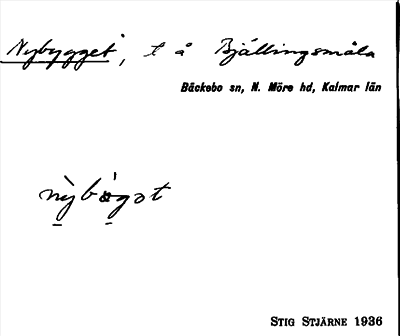 Nybygget, t å Bjällingsmåla
Bäckebo sn, N. Möre hd, Kalmar län
nỳbǿgət
STIG STJÄRNE 1936